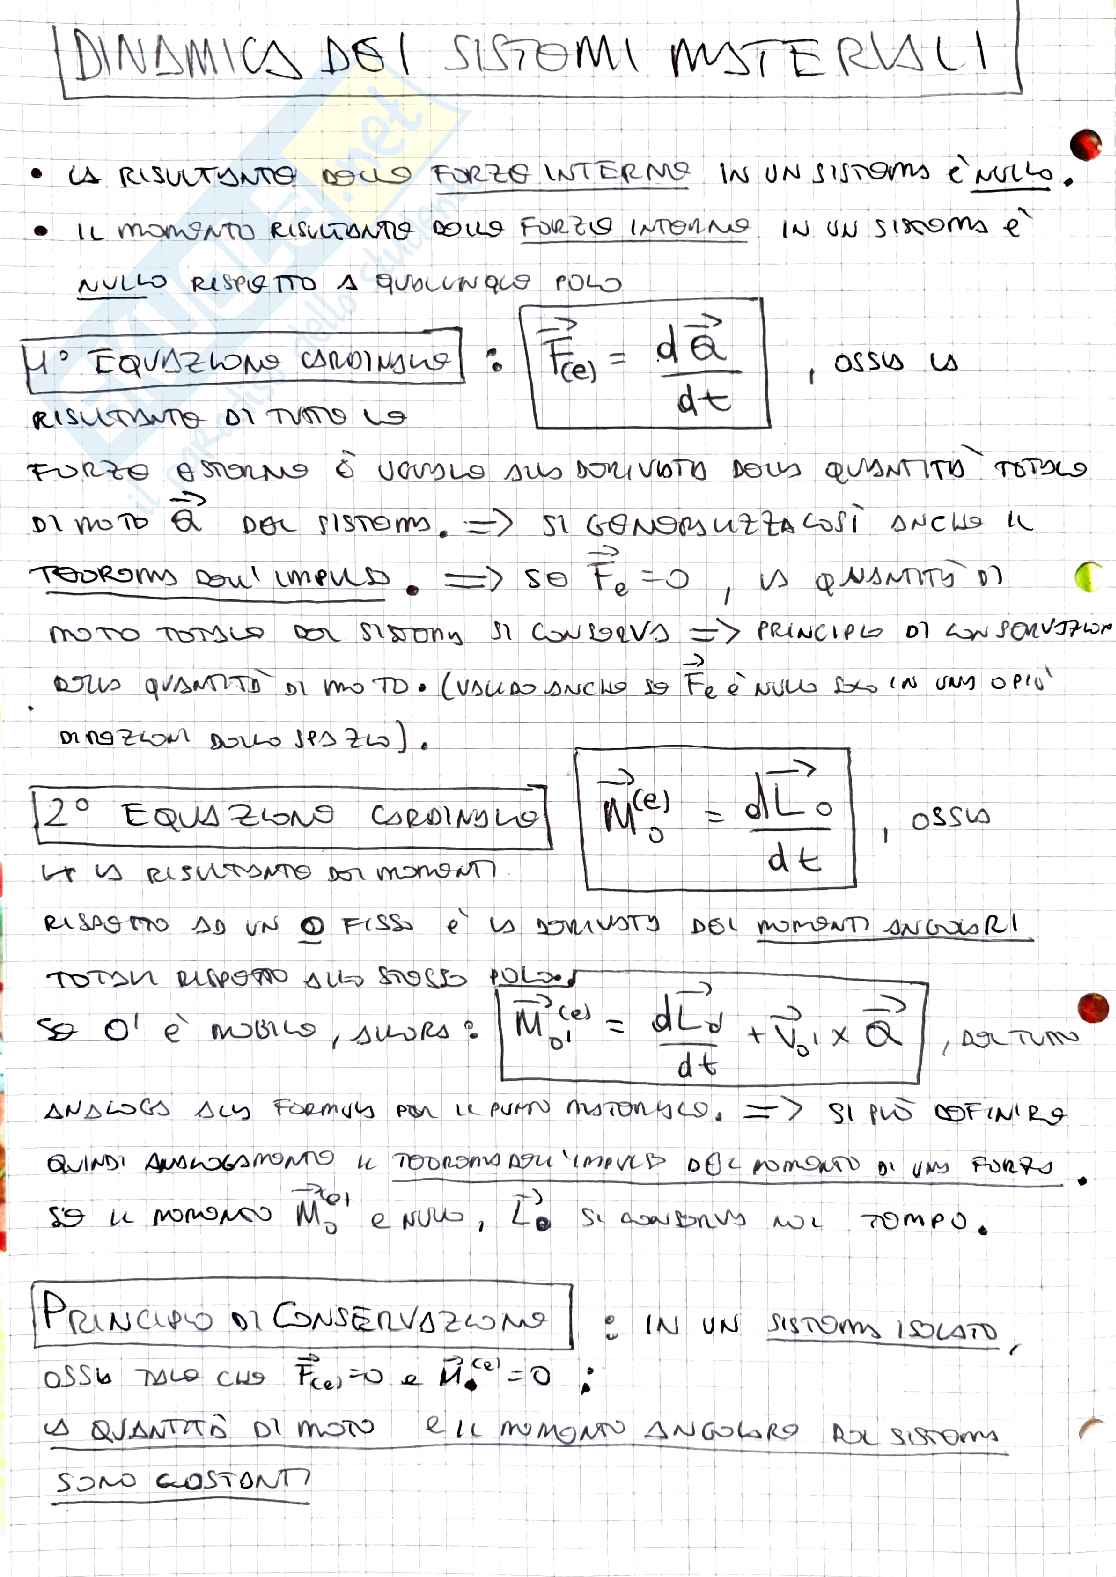 DINAMICA DEI SISTEMI MATERIALI
• LA RISULTANTE DELLE FORZE INTERNE IN UN SISTEMA È NULLA.
• IL MOMENTO RISULTANTE DELLE FORZE INTERNE IN UN SISTEMA È
NULLO RISPETTO A QUALUNQUE POLO
1° EQUAZIONE CARDINALE : F⃗(e) = dQ⃗/dt , OSSIA LA
RISULTANTE DI TUTTE LE
FORZE ESTERNE È UGUALE ALLA DERIVATA DELLA QUANTITÀ TOTALE
DI MOTO Q⃗ DEL SISTEMA. => SI GENERALIZZA COSÌ ANCHE IL
TEOREMA DELL'IMPULSO. => SE F⃗e = 0 , LA QUANTITÀ DI
MOTO TOTALE DEL SISTEMA SI CONSERVA => PRINCIPIO DI CONSERVAZION
DELLA QUANTITÀ DI MOTO. (VALIDO ANCHE SE F⃗e È NULLO SOLO IN UNA O PIÙ
DIREZIONI DELLO SPAZIO).
2° EQUAZIONE CARDINALE M⃗o(e) = dL⃗o/dt , OSSIA
↳ LA RISULTANTE DEI MOMENTI
RISPETTO AD UN O FISSO È LA DERIVATA DEI MOMENTI ANGOLARI
TOTALI RISPETTO ALLO STESSO POLO.
SE O' È MOBILE, ALLORA: M⃗o'(e) = dL⃗o'/dt + V⃗o' x Q⃗ , DEL TUTTO
ANALOGA ALLA FORMULA PER IL PUNTO MATERIALE. => SI PUÒ DEFINIRE
QUINDI ANALOGAMENTE IL TEOREMA DELL'IMPULSO DEL MOMENTO DI UNA FORZA.
SE IL MOMENTO M⃗o(e) E NULLO, L⃗o SI CONSERVA NEL TEMPO.
PRINCIPIO DI CONSERVAZIONE : IN UN SISTEMA ISOLATO,
OSSIA TALE CHE F⃗(e)=0 E M⃗o(e)=0 :
LA QUANTITÀ DI MOTO E IL MOMENTO ANGOLARE DEL SISTEMA
SONO COSTANTI